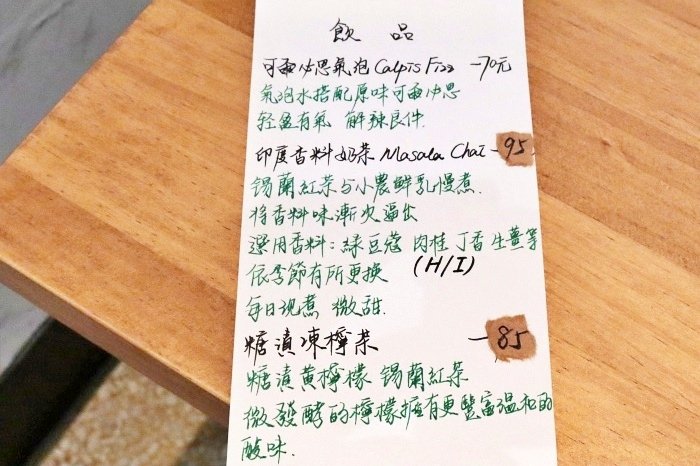 飲品
可爾必思氣泡 Calpis Fizz -70元
氣泡水搭配原味可爾必思
輕盈有氣 解辣良伴
印度香料奶茶 Masala Chai -95
錫蘭紅茶与小農鮮乳慢煮.
將香料味漸次逼出
選用香料:綠豆蔻 肉桂 丁香 生薑等
依季節有所更換 (H/I)
每日現煮 微甜.
糖漬凍檸茶 -85
糖漬黃檸檬 錫蘭紅茶
微發酵的檸檬擁有更豐富溫和的
酸味.